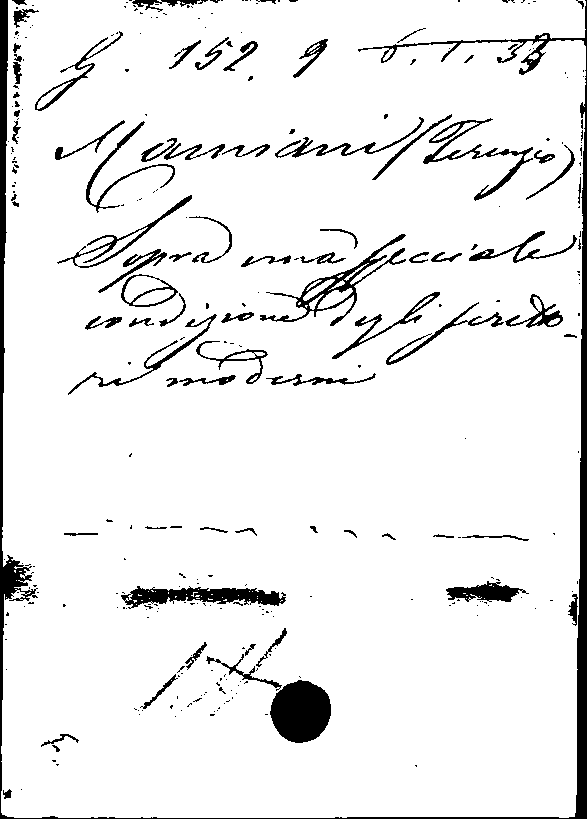 G. 152. 9 6. 1. 33
Mamiani (Terenzio)
Sopra una speciale
condizione degli scritto-
ri moderni